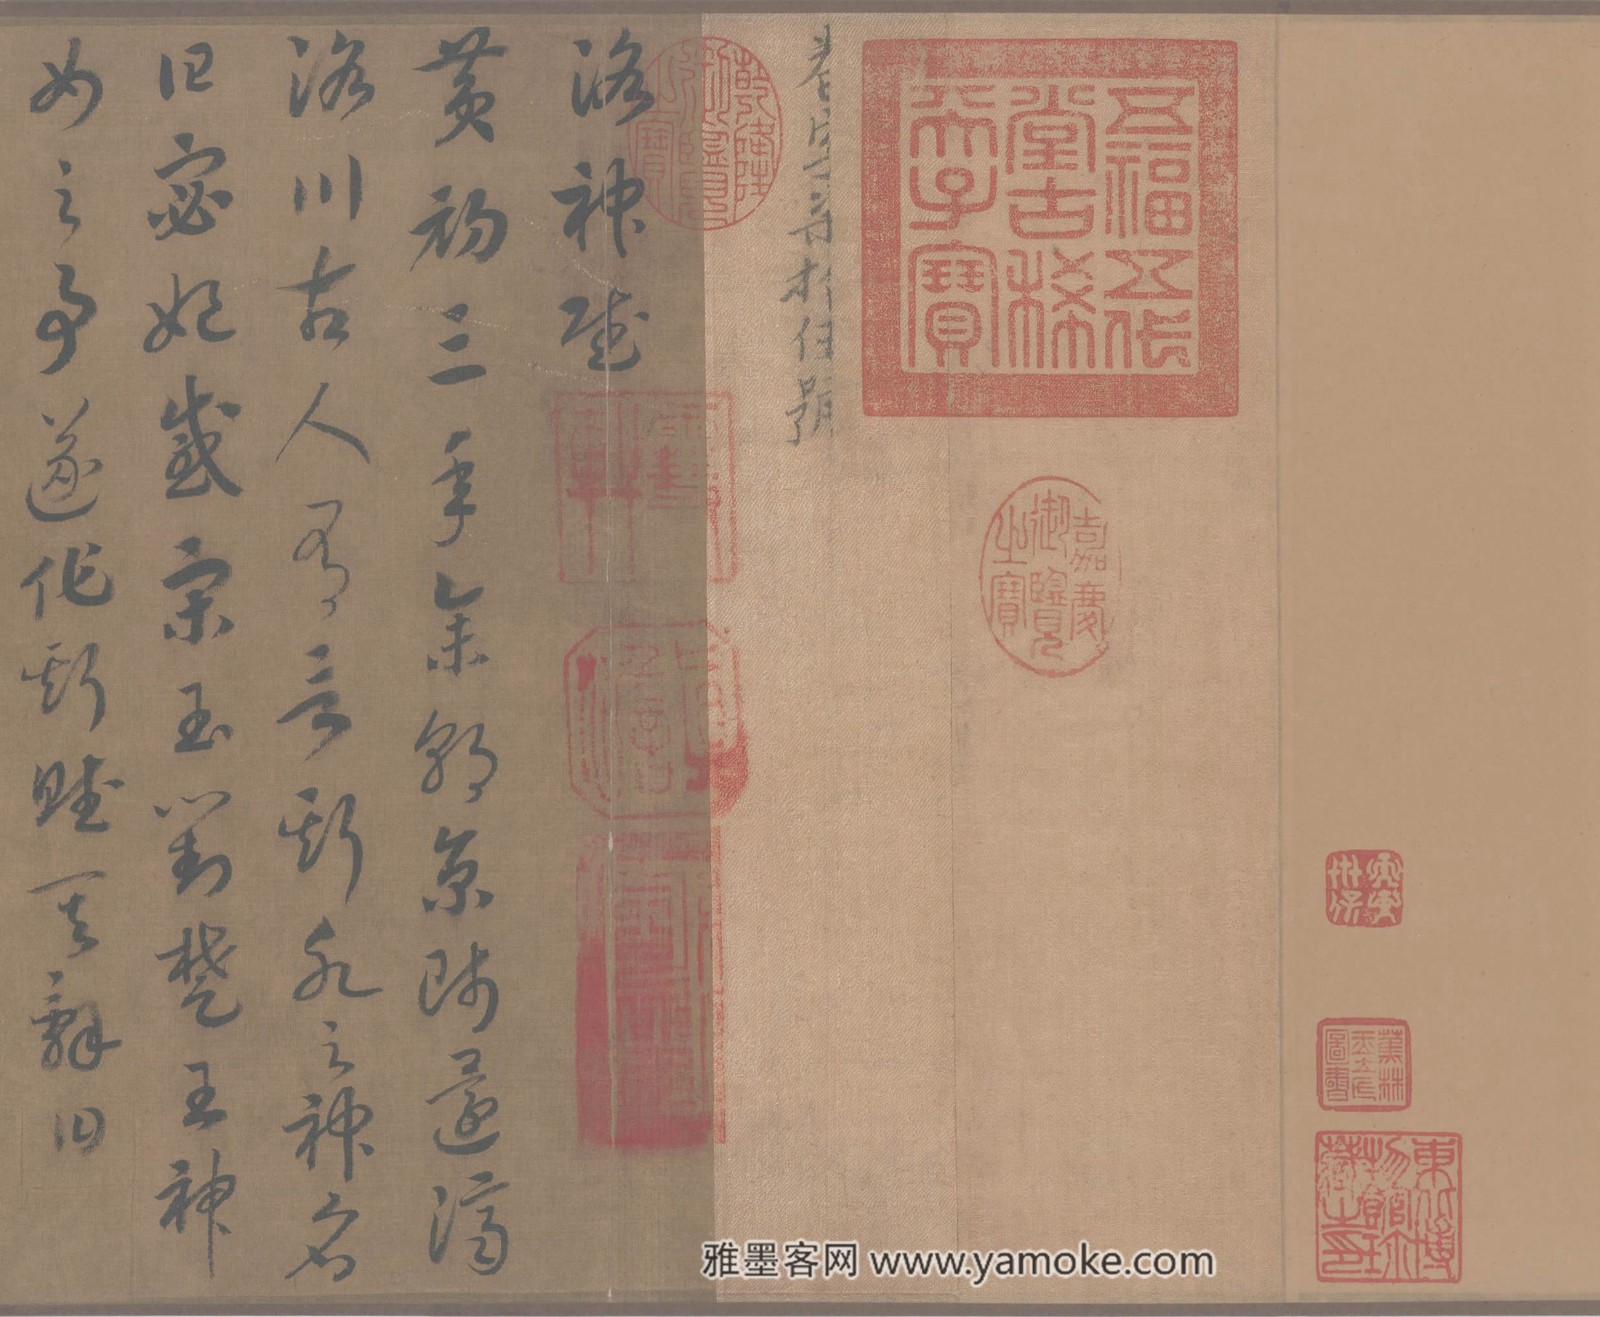 東北博
物館珍
藏之印
蕉林
玉立氏
圖書
五福五代
堂古稀
天子寶
嘉慶
御覽
之寶
乾隆
御覽
之寶
洛神賦
黃初三年余朝京師還濟
洛川古人有言斯水之神名
曰宓妃感宋玉對楚王神
女之事遂作斯賦其辭曰
雅墨客网 www.yamoke.com